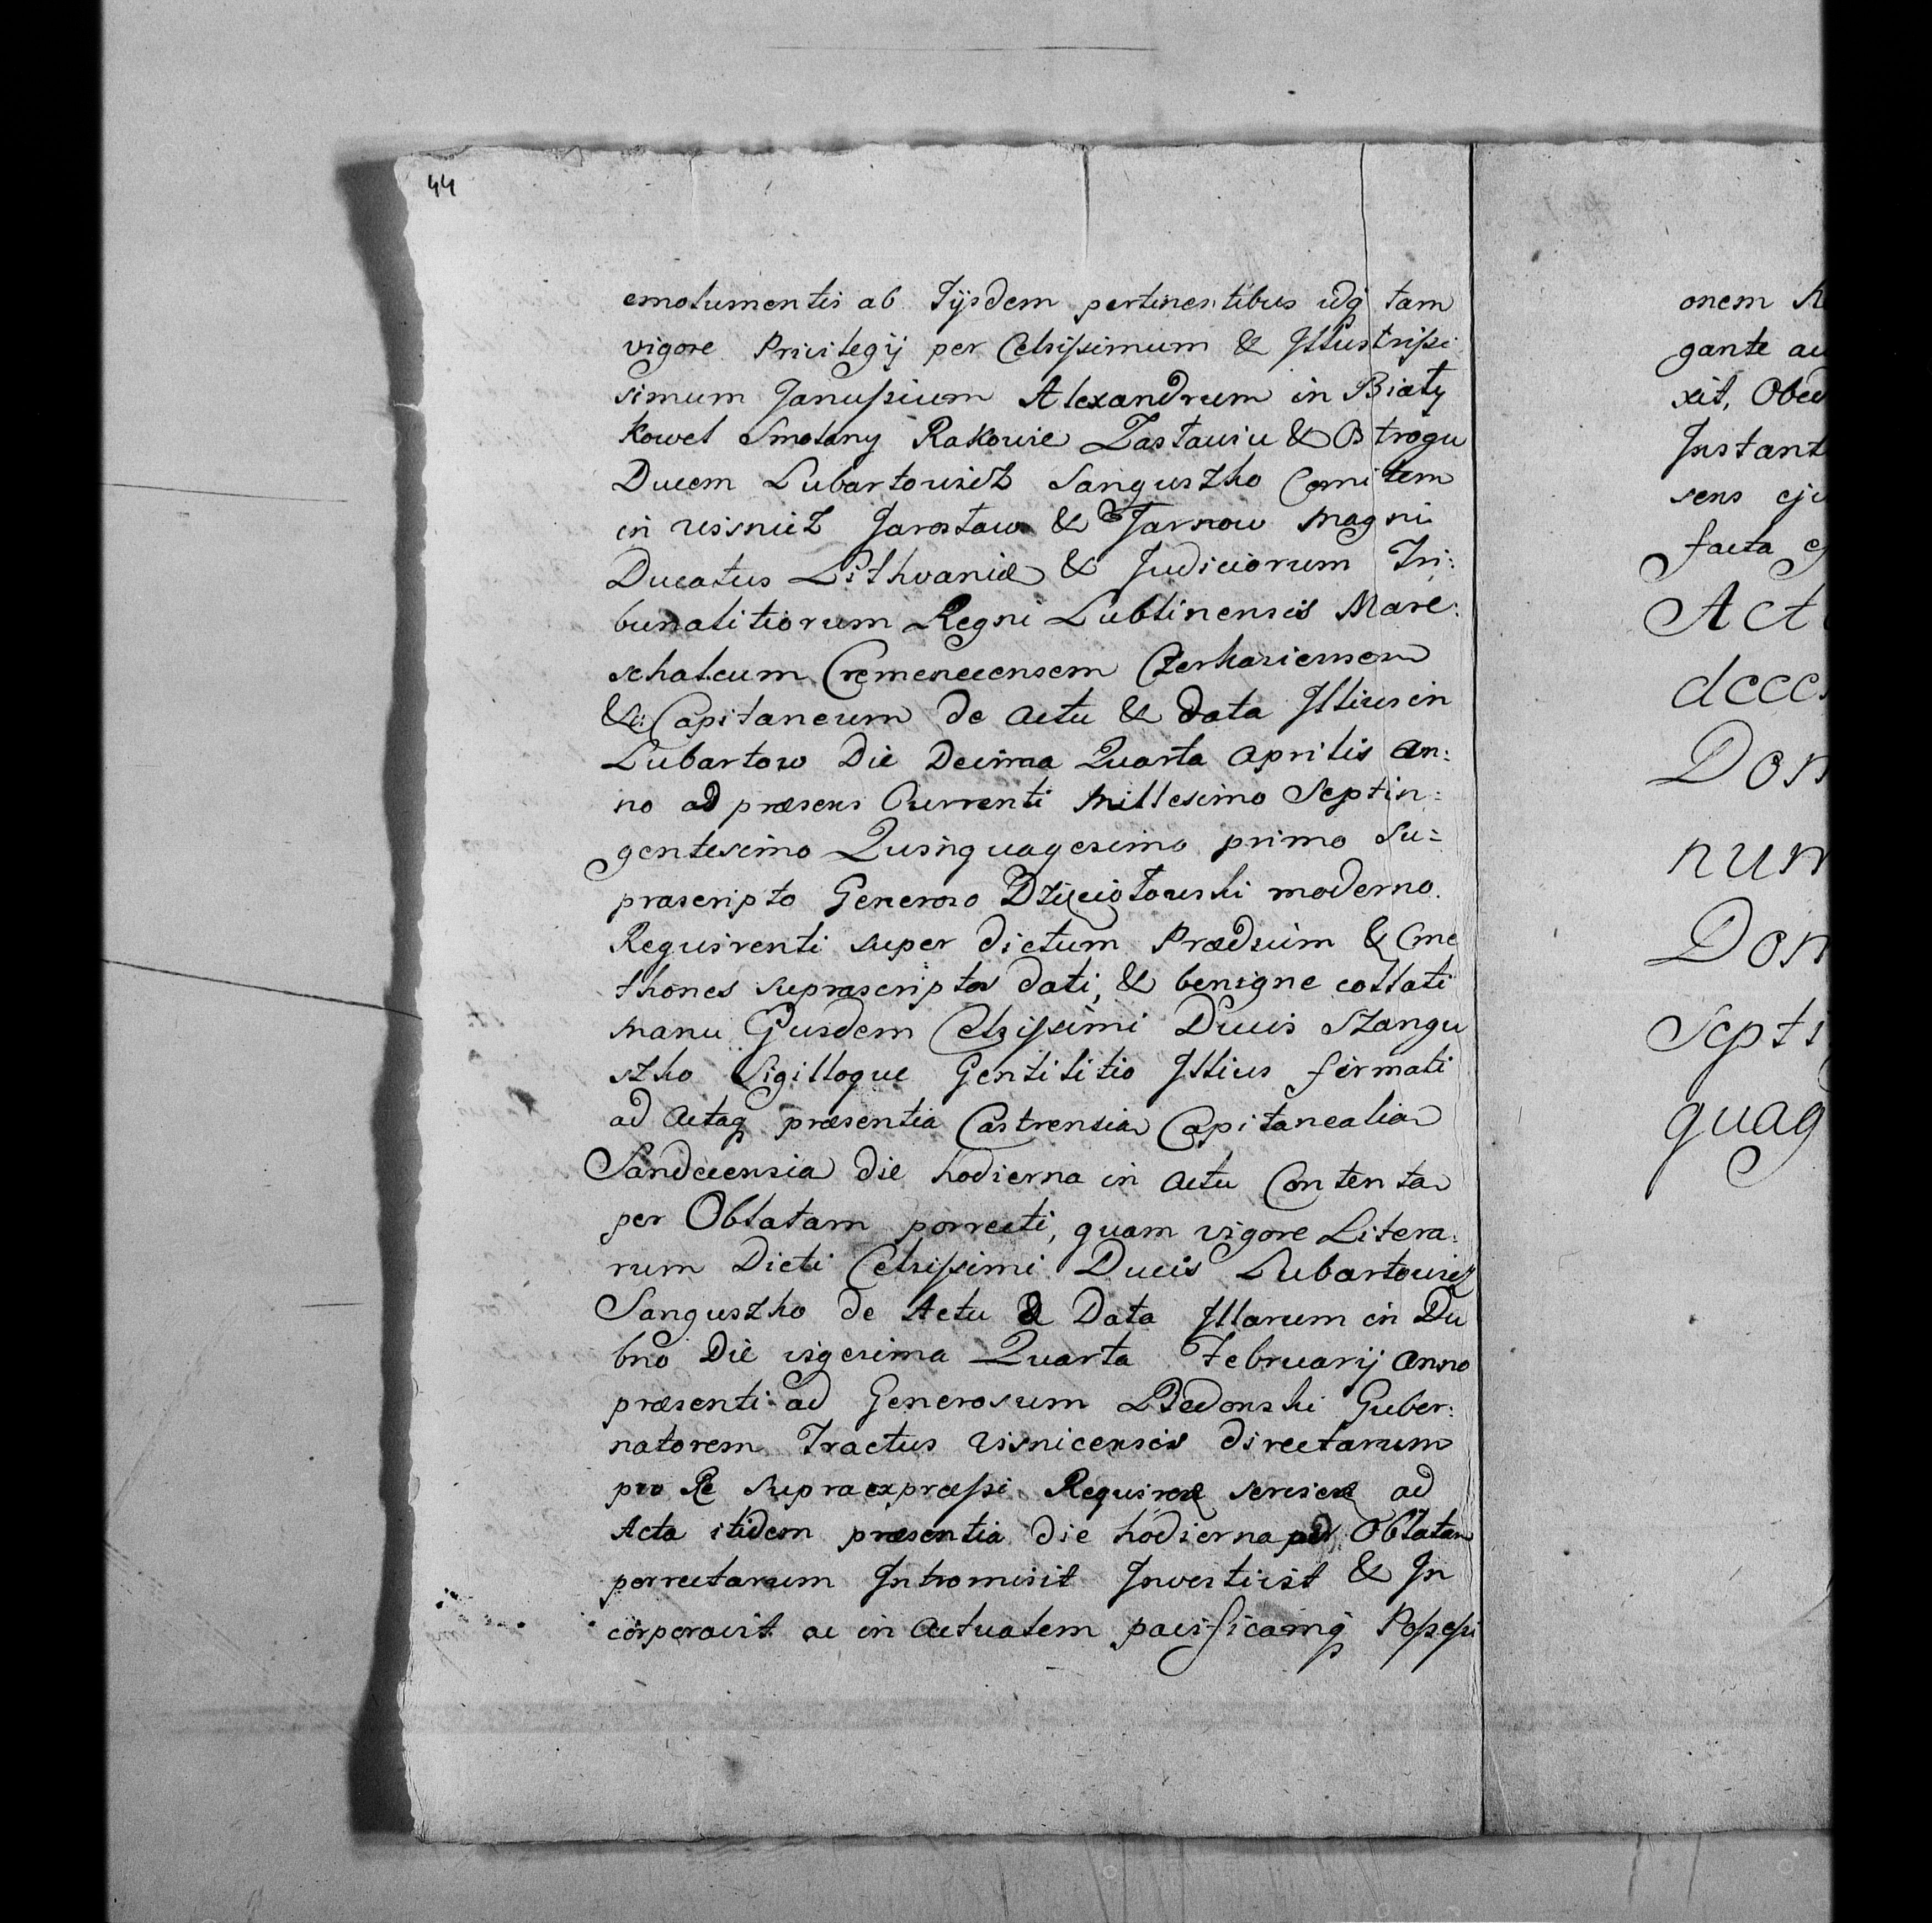 44
emolumentis ab Iysdem pertinentibus idq tam
vigore Privilegij per Celsissimum & Illustrissi
simum Janussium Alexandrum in Biały
Kowel Smolany Rakowie Zasławiu & Ostrogu
Ducem Lubartowicz Sanguszko Comitem
in Wisnicz Jarosław & Tarnow Magni
Ducatus Lithvaniæ & Judiciorum Tri:
bunalitiorum Regni Lublinensis Mare:
schalcum Cremenecensem Czerkasiensem
&c: Capitaneum de Actu & Data Illius in
Lubartow Die Decima Quarta Aprilis An:
no ad præsens Currenti Millesimo Septin:
gentesimo Quinquagesimo primo Su=
prascripto Generoso Dzięciołowski moderno
Requirenti super dictum Prædium & Cme
thones suprascriptos dati, & benigne collati
Manu Ejusdem Celsissimi Ducis Szangu
szko Sigilloque Gentilitio Illius firmati
ad Actaq præsentia Castrensia Capitanealia
Sandecensia die hodierna in Actu Contenta
per Oblatam porrecti, quam vigore Litera:
rum Dicti Celsissimi Ducis Lubartowicz
Sanguszko de Actu & Data Illarum in Du
bno Die vigesima Quarta Februarij Anno
præsenti ad Generosum Bedonski Guber:
natorem Tractus Wisnicensis directarum
pro Re supraexpressi Requiren servien ad
Acta itidem præsentia die hodierna per Oblatam
porrectarum Intromisit Investivit & In
corporavit ac in Actualem pacificamq Possessi
onem
gante au
xit, Obed
Instant
sens eju
facta e
Act
dccc
Don
num
Don
Septi
quag